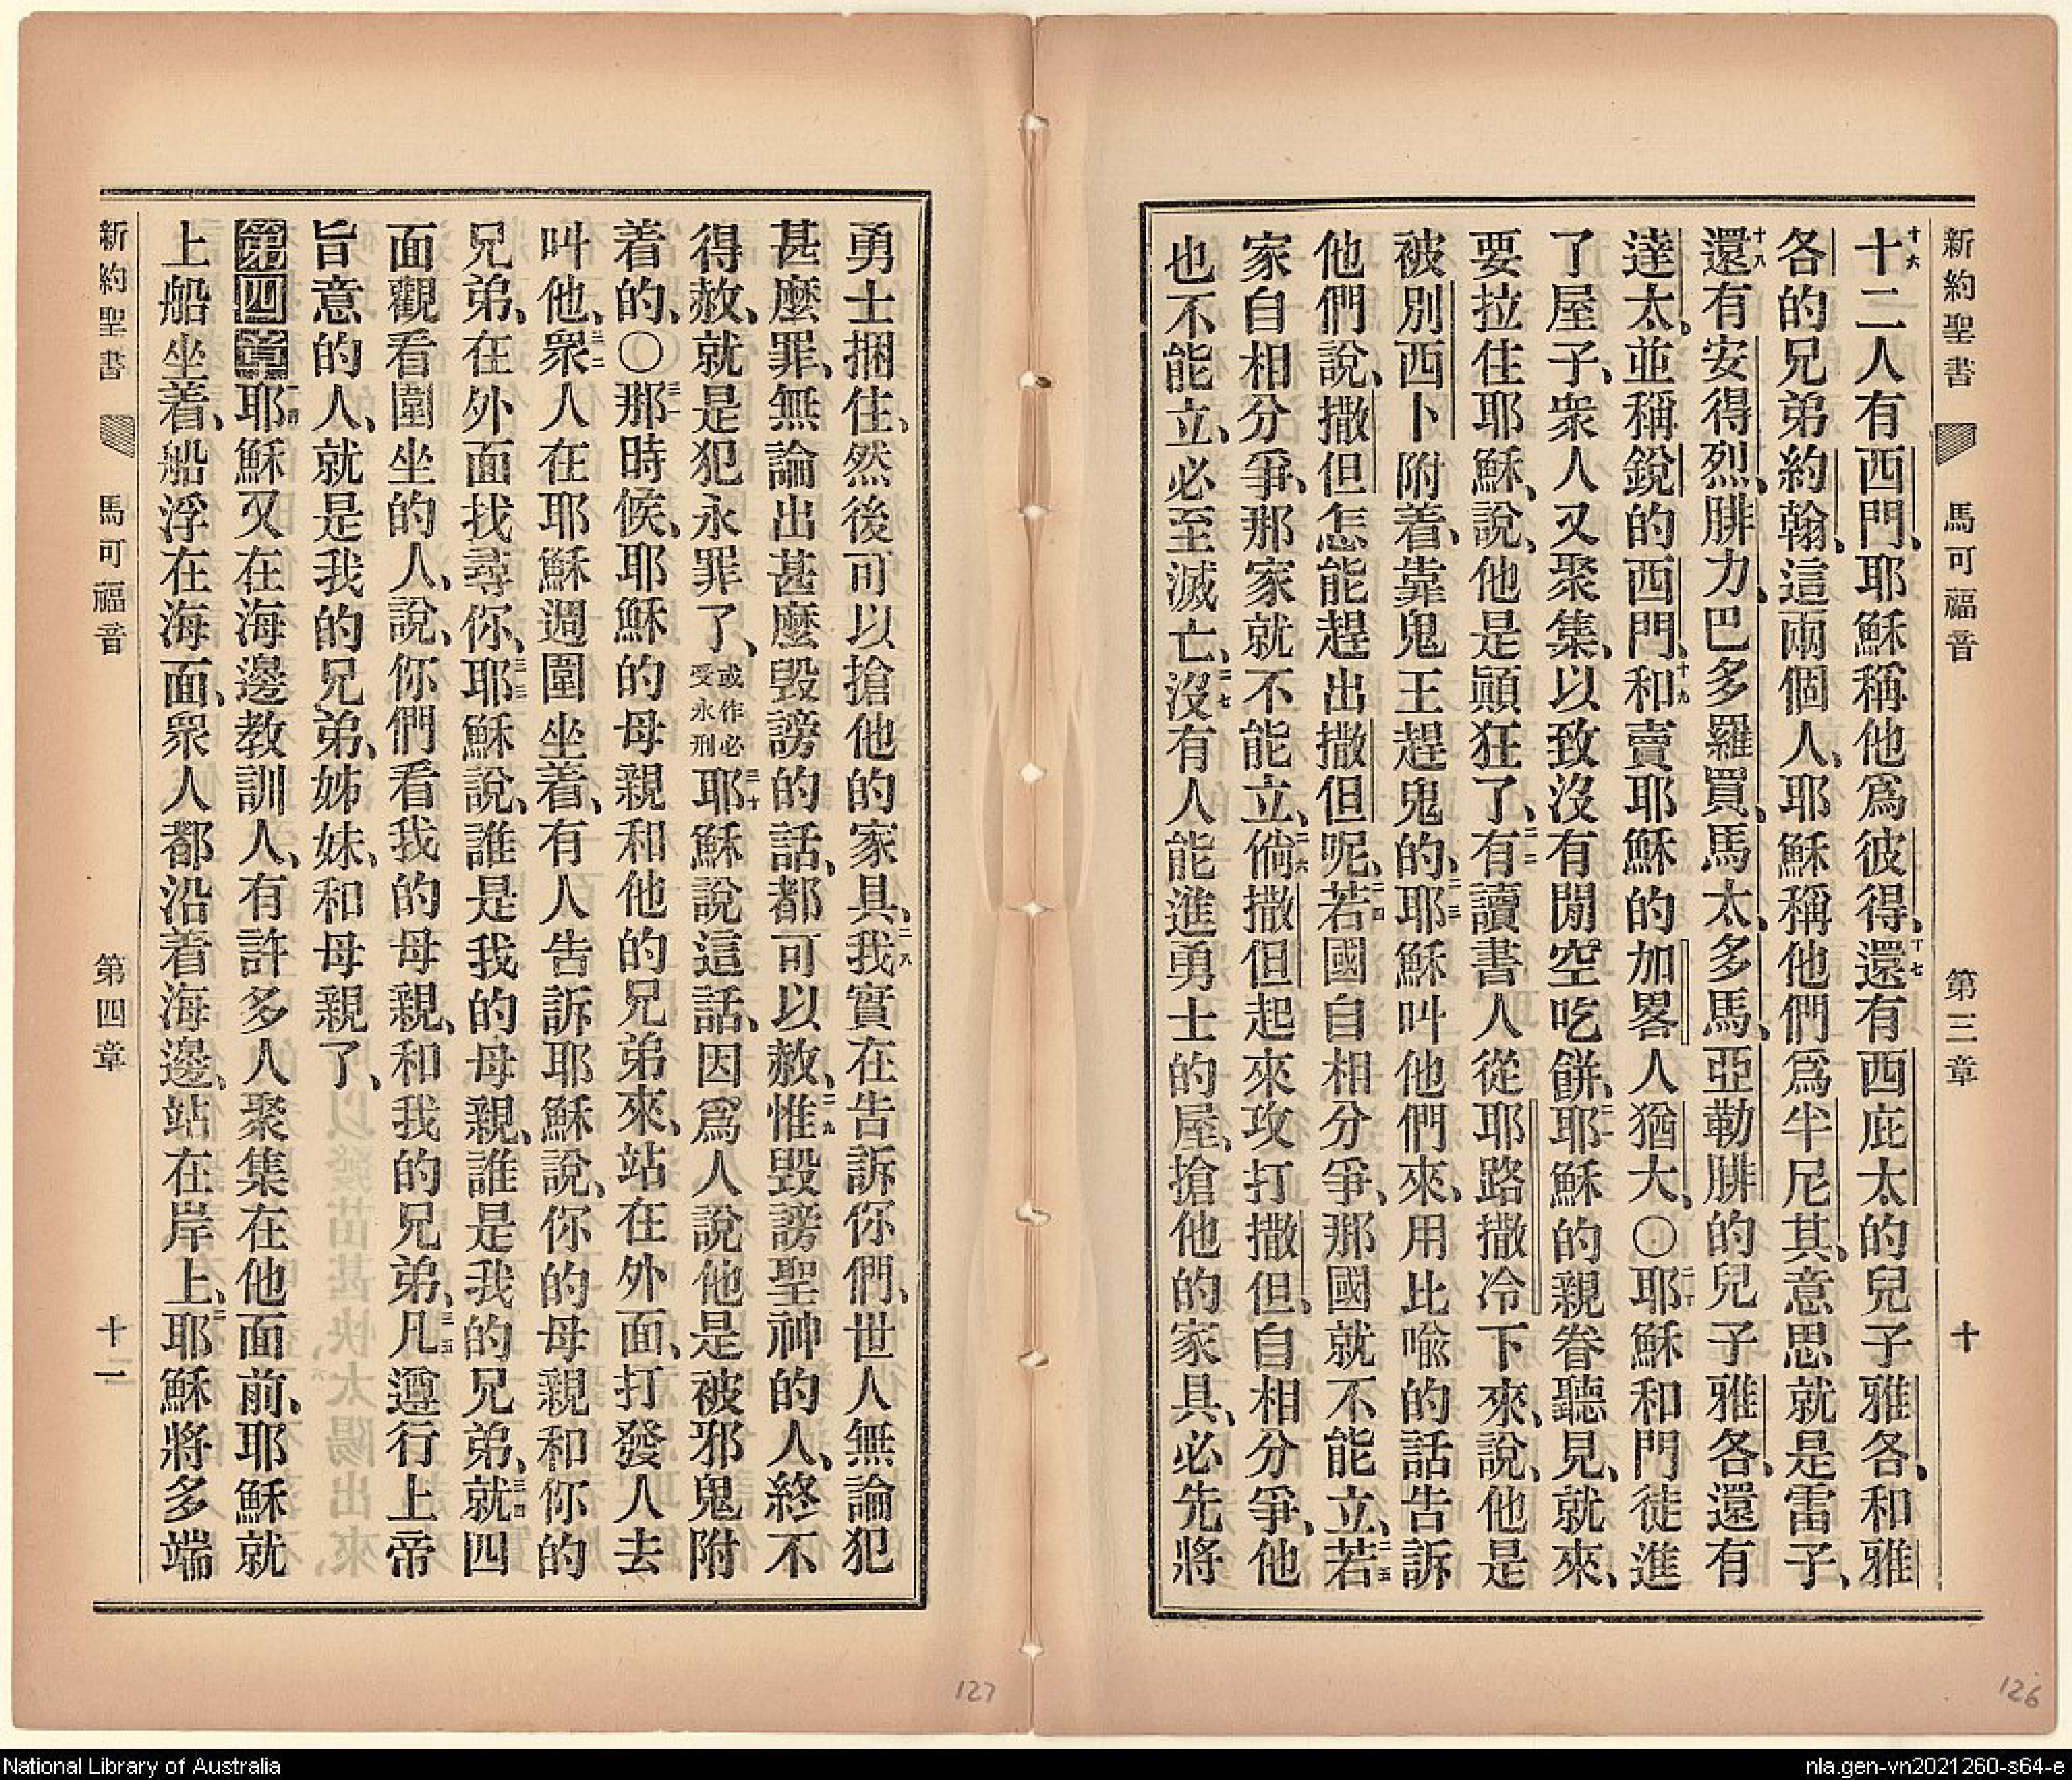 新約聖書 馬可福音 第三章 十
十六十二人有西門、耶穌稱他爲彼得、十七還有西庇太的兒子雅各、和雅
各的兄弟約翰、這兩個人、耶穌稱他們爲半尼其、意思就是雷子、
十八還有安得烈、腓力、巴多羅買、馬太、多馬、亞勒腓的兒子雅各、還有
達太、並稱銳的西門、十九和賣耶穌的加畧人猶大、〇二十耶穌和門徒進
了屋子、衆人又聚集、以致沒有閒空吃餅、二一耶穌的親眷聽見、就來、
要拉住耶穌、說、他是顚狂了、二二有讀書人從耶路撒冷下來、說、他是
被別西卜附着、靠鬼王趕鬼的、二三耶穌叫他們來、用比喩的話告訴
他們說、撒但怎能趕出撒但呢、二四若國自相分爭、那國就不能立、二五若
家自相分爭、那家就不能立、二六倘撒但起來攻打撒但、自相分爭、他
也不能立、必至滅亡、二七沒有人能進勇士的屋、搶他的家具、必先將
126
勇士捆住、然後可以搶他的家具、二八我實在告訴你們、世人無論犯
甚麼罪、無論出甚麼毀謗的話、都可以赦、二九惟毀謗聖神的人、終不
得赦、就是犯永罪了、或作必受永刑三十耶穌說這話、因爲人說他是被邪鬼附
着的、〇三一那時候、耶穌的母親和他的兄弟來、站在外面、打發人去
叫他、三二衆人在耶穌週圍坐着、有人告訴耶穌說、你的母親和你的
兄弟、在外面找尋你、三三耶穌說、誰是我的母親、誰是我的兄弟、三四就四
面觀看圍坐的人、說、你們看我的母親、和我的兄弟、三五凡遵行上帝
旨意的人、就是我的兄弟、姊妹、和母親了、
第四章一節耶穌又在海邊敎訓人、有許多人聚集在他面前、耶穌就
上船坐着、船浮在海面、衆人都沿着海邊、站在岸上、二耶穌將多端
新約聖書 馬可福音 第四章 十一
127
National Library of Australia
nla.gen-vn2021260-s64-e